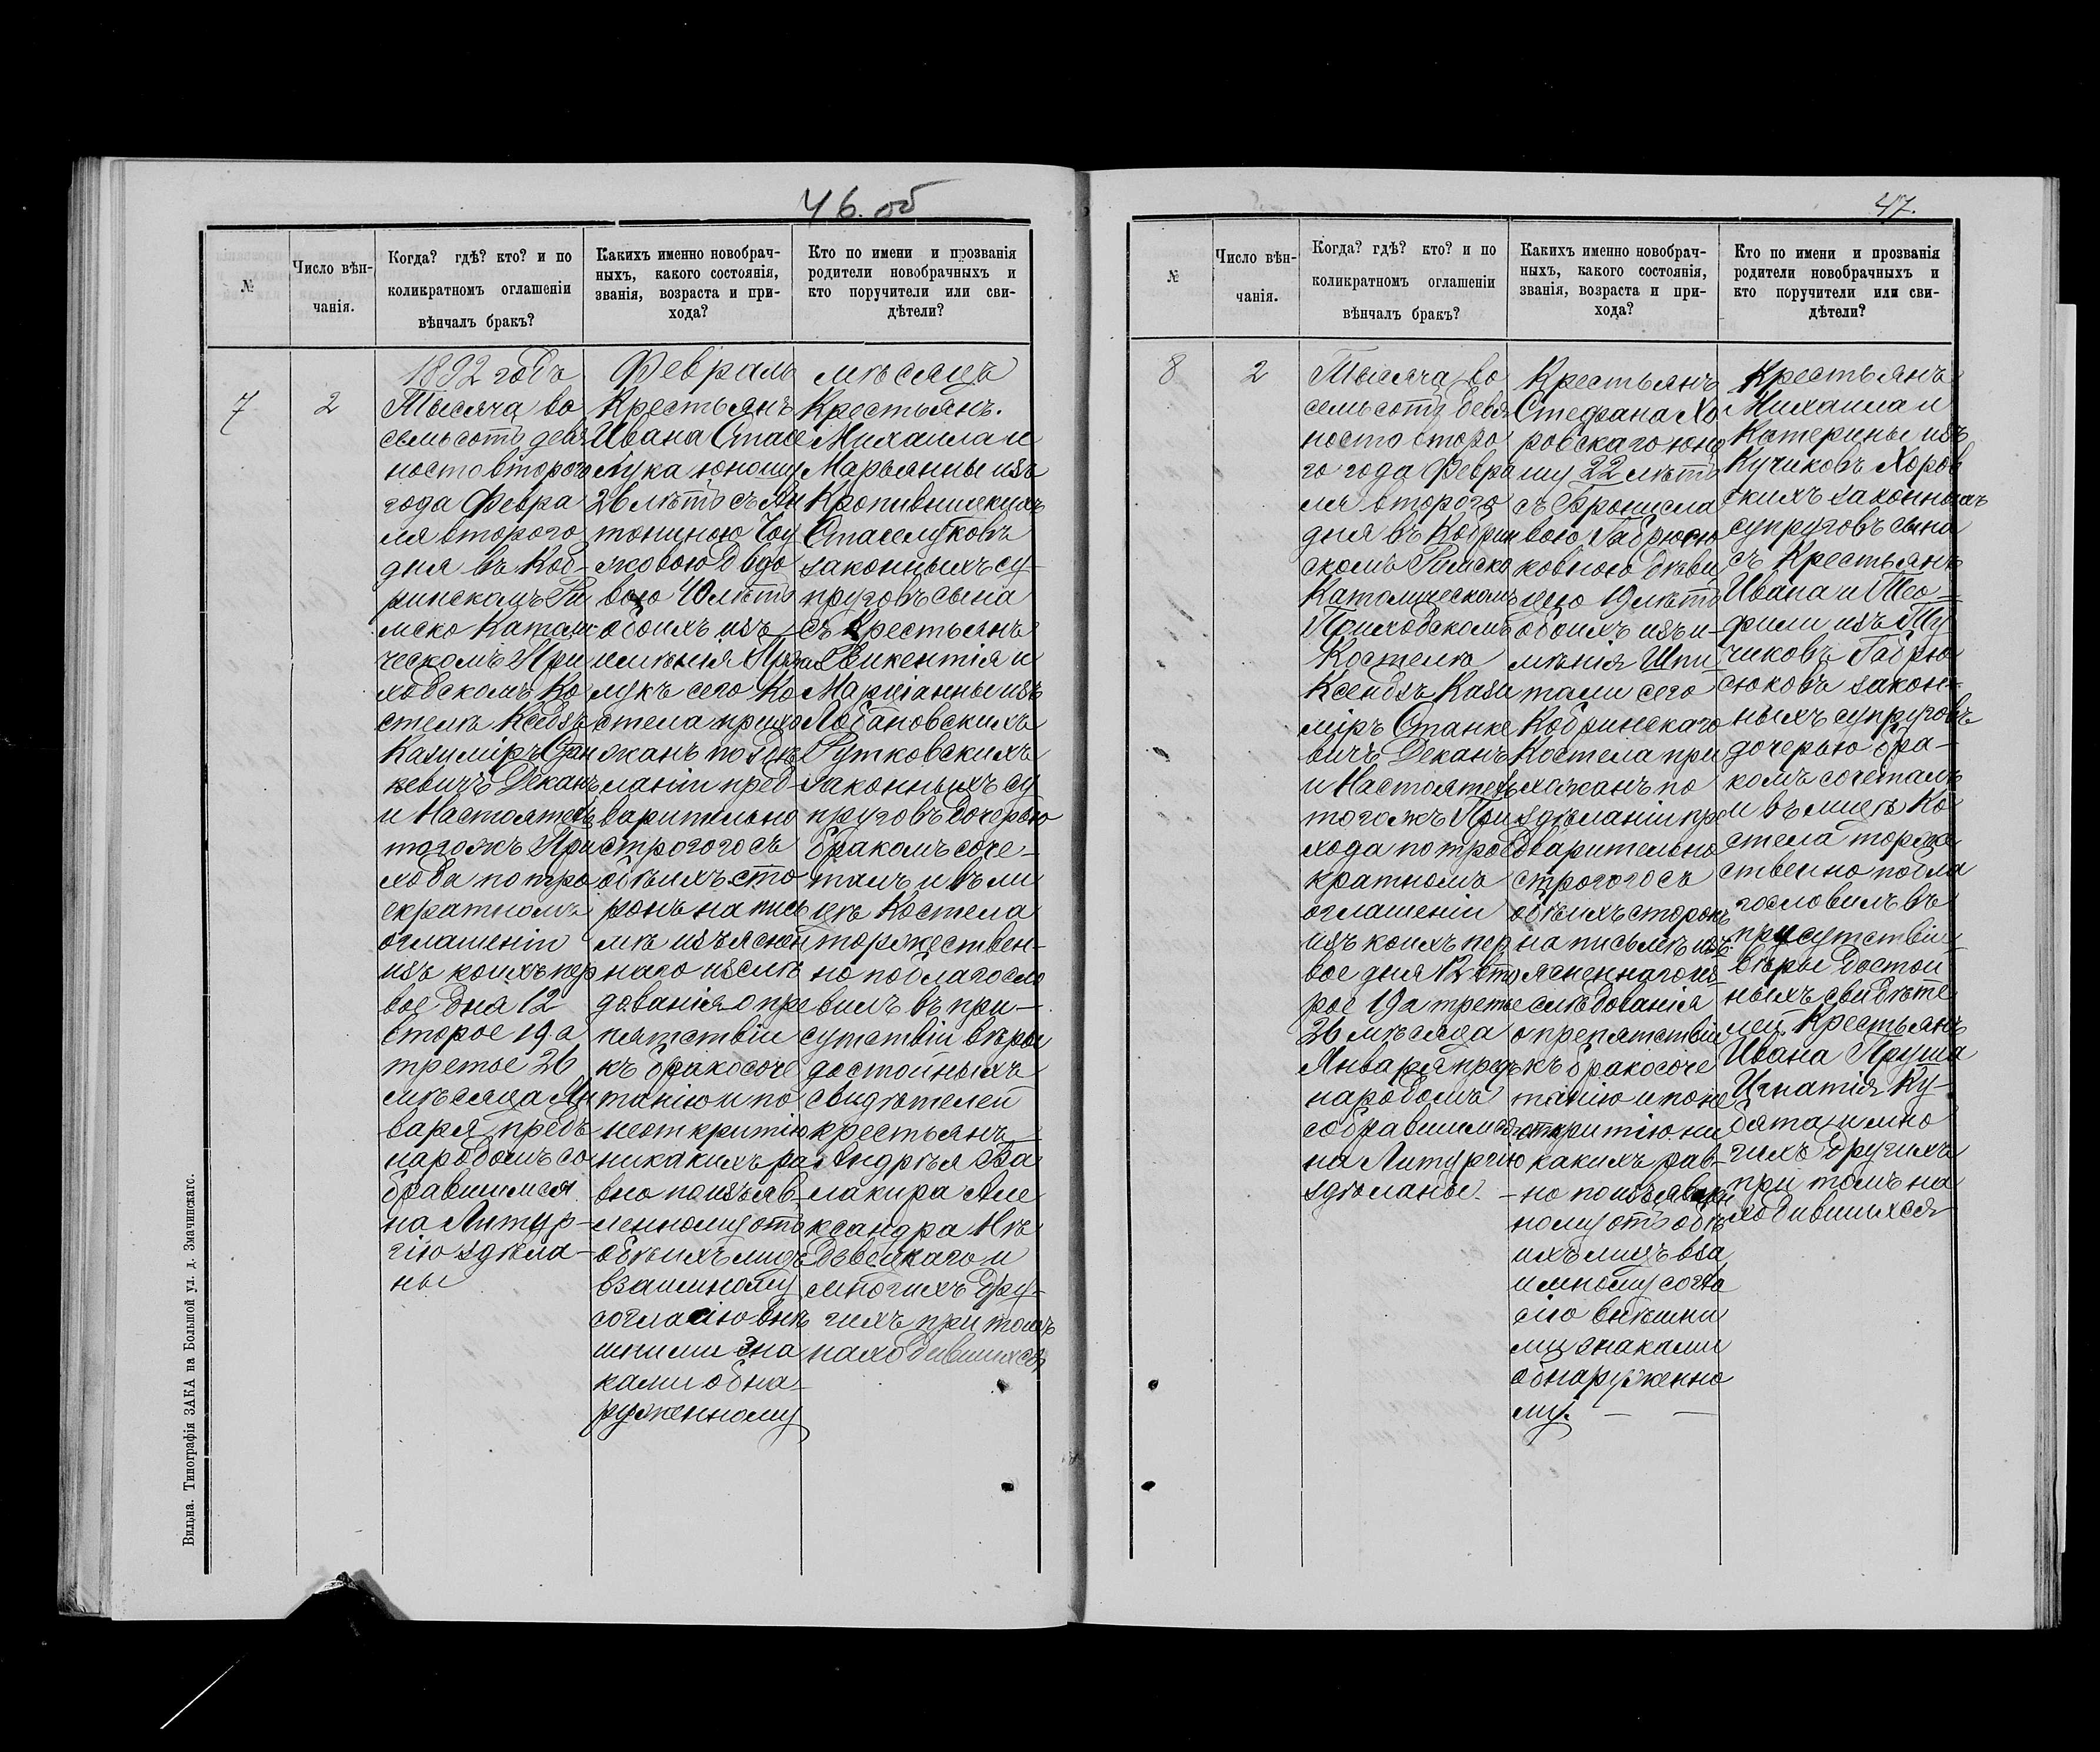 46. об
№
Число вѣн-
чанія.
Когда? гдѣ? кто? и по
коликратномъ оглашеніи
вѣнчалъ бракъ?
Какихъ именно новобрач-
ныхъ, какого состоянія,
званія, возраста и при-
хода?
Кто по имени и прозванія
родители новобрачныхъ и
кто поручители или сви-
дѣтели?
1892 годъ Февраль мѣсяцъ
7
2
Тысяча во
семьсотъ девя
носто второго
года Февра
ля второго
дня въ Коб-
ринскомъ Ри
мско Католи
ческомъ При
ходскомъ Ко
стелѣ Ксендзъ
Казиміръ Стан
кевичъ Деканъ
и Настоятель
тогожъ При
хода по трое
кратномъ
оглашеніи
изъ коихъ пер
вое дня 12
второе 19 а
третье 26
мѣсяца Ян
варя предъ
народомъ со
бравшимся
на Литур-
гію здѣла-
ны
Крестьянъ
Ивана Стасе
лука юношу
26 лѣтъ съ Ан
тониною
жковою вдо
вою 40 лѣтъ
обоихъ изъ
имѣнія
лукъ сего Ко
стела прихо
жанъ по здѣ
ланіи пред-
варительно
строгого съ
обѣихъ сто
ронъ на пись
мѣ изъяснен
наго изслѣ
дованія о пре
пятствіи
къ бракосоче
танію и по
неоткритію
никакихъ ра
вно поизъяв-
ленному отъ
обѣихъ лицъ
взаимному
согласію внѣ
шними зна
ками обна-
руженному
Крестьянъ.
Михаила и
Марьянны изъ
Кропивницкихъ
Стаселуковъ
законныхъ су-
пруговъ сына
съ Крестьянъ
Викентія и
Маріанны изъ
Лобановскихъ
Рутковскихъ
законныхъ су
пруговъ дочерью
бракомъ соче-
талъ и въ ли
цѣ Костела
торжествен-
но поблагосло
вилъ въ при-
сутствіи вѣры
достойныхъ
свидѣтелей
крестьянъ
Андрѣя Ва
лакира Але
ксандра Нѣ
двѣцкаго и
многихъ дру-
гихъ при томъ
находившихся
Вильна. Типографія ЗАКА на Большой ул. д. Значинскаго.
47.
№
Число вѣн-
чанія.
Когда? гдѣ? кто? и по
коликратномъ оглашеніи
вѣнчалъ бракъ?
Какихъ именно новобрач-
ныхъ, какого состоянія,
званія, возраста и при-
хода?
Кто по имени и прозванія
родители новобрачныхъ и
кто поручители или сви-
дѣтели?
8
2
Тысяча во
семьсотъ девя
носто второ
го года Февра
ля второго
дня въ Кобрин
скомъ Римско
Католическомъ
Приходскомъ
Костелѣ
Ксендзъ Кази
міръ Станке
вичъ Деканъ
и Настоятель
тогожъ При
хода по трое
кратномъ
оглашеніи
изъ коихъ пер
вое дня 12 вто
рое 19 а третье
26 мѣсяца
Января предъ
народомъ
собравшимся
на Литургію
здѣланы.
Крестьянъ
Стефана Хо
ровскаго юно
шу 22 лѣтъ
съ Бронисла
вою Габрюсю
ковною дѣви
цею 19 лѣтъ
обоихъ изъ и-
мѣнія Шпи
тали сего
Кобринскаго
Костела при
хожанъ по
здѣланіи пре
дварительно
строгого съ
обѣихъ сторонъ
на письмѣ изъ
ясненнаго из
слѣдованія
о препятствіи
къ бракосоче
танію и по не
откритію ни
какихъ рав-
но поизъявле
ному отъ обѣ
ихъ лицъ вза
имному согла
сію внѣшни
ми знаками
обнаруженно
му.
Крестьянъ
Михаила и
Катерины изъ
Кучиковъ Хоров
скихъ законныхъ
супруговъ сына
съ Крестьянъ
Ивана и Тео-
фили изъ Ту
чиковъ Габрю
сюковъ закон-
ныхъ супруговъ
дочерью бра-
комъ сочеталъ
и въ лицѣ Ко
стела торже
ственно побла
гословилъ въ
присутствіи
вѣры достой
ныхъ свидѣте
лей Крестьянъ
Ивана Пруша
Игнатія Ку-
бята и мно
гихъ другихъ
при томъ на
ходившихся